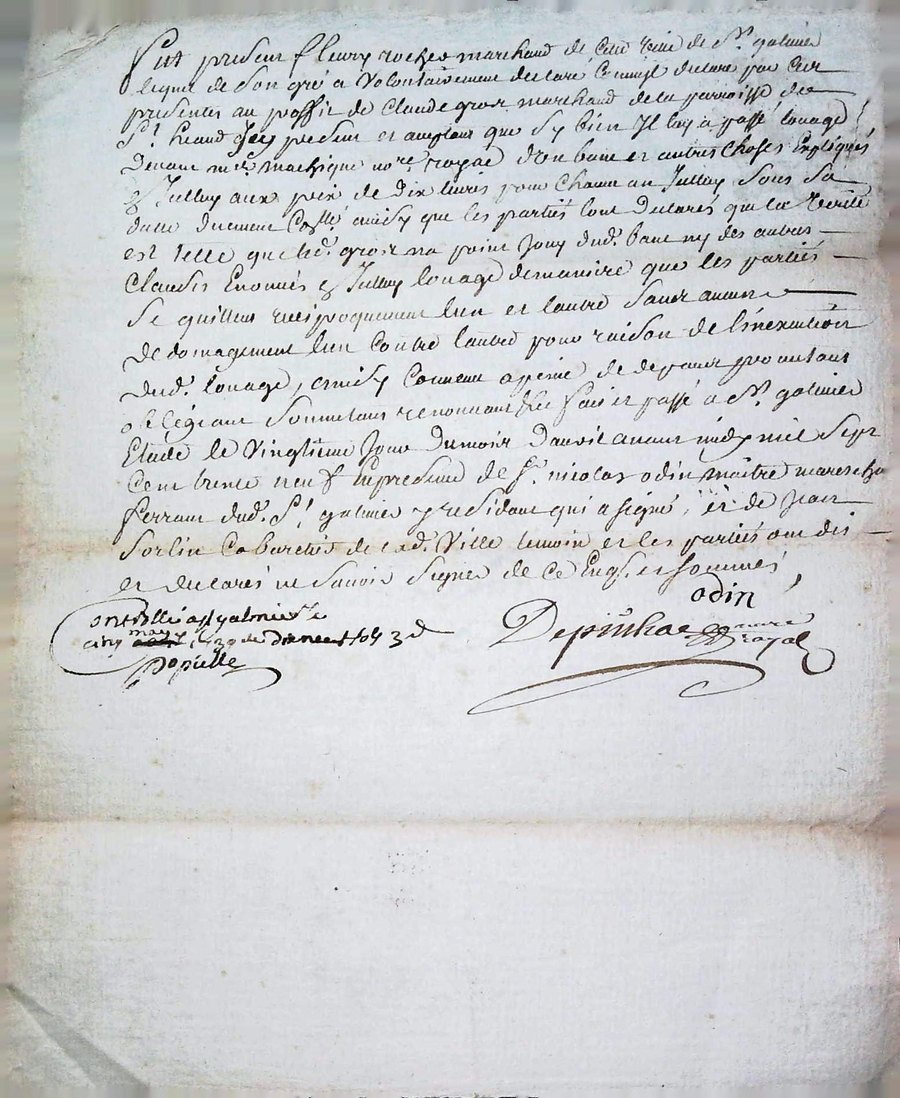 Fut present fleury rocher marchand de cette ville de St. galmier
lequel de son gré a volontairement declaré comme il declare par ces
presentes au proffit de Claude gros marchand de la parroisse de
St. heand Icy present et acceptant que sy bien Il luy a passé louage
devant me. nore. royal d'un banc et autres choses Expliqués
& Jcelluy aux prix de dix livres pour chacun an Jcelluy sous sa
datte duement Collé. ainsy que les parties l'ont declarés que la verité
est telle que led. gros n'a point Jouy dud. banc ny des autres
clauses Enoncés & Jcelluy louage de maniere que les parties
se quittent reciproquement l'un et l'autre sans aucun
dedomagement l'un contre l'autre pour raison de l'inexecution
dud. louage, ainsy convenu a peine de depens promettant
obligeant soumettant renonceant &c fait et passé a St. galmier
Etude le vingtieme Jour du mois d'avril avant midy mil sept
Cent trente neuf En presence de Sr. nicolas odin maitre mareschal
ferrant dud. St. galmier y residant qui a signé, et de Jean
Sorlin Cabaretier de lad. ville temoin et les parties ont dit
et declarés ne scavoir signer de ce Enqs. et sommés
odin
Controllé a St galmier le
cinq may 1739 3 d
Depinhac nore royal
Popielle